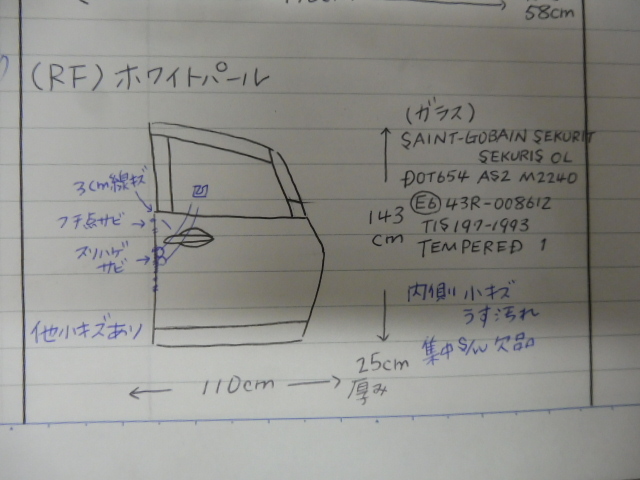 58cm
(RF) ホワイトパール
(ガラス)
SAINT-GOBAIN SEKURIT
SEKURIS OL
DOT654 AS2 M2240
E6 43R-008612
TIS 197-1993
TEMPERED 1
143
cm
3cm線キズ
フチ点サビ
スリハゲ
サビ
他小キズあり
内側 小キズ
うす汚れ
集中S/W 欠品
110cm
25cm
厚み